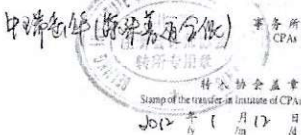 中瑞岳华(特殊普通合伙) 事务所
CPAs
转所专用章
转入协会盖章
Stamp of the transfer-in Institute of CPAs
2012 年 1 月 12 日